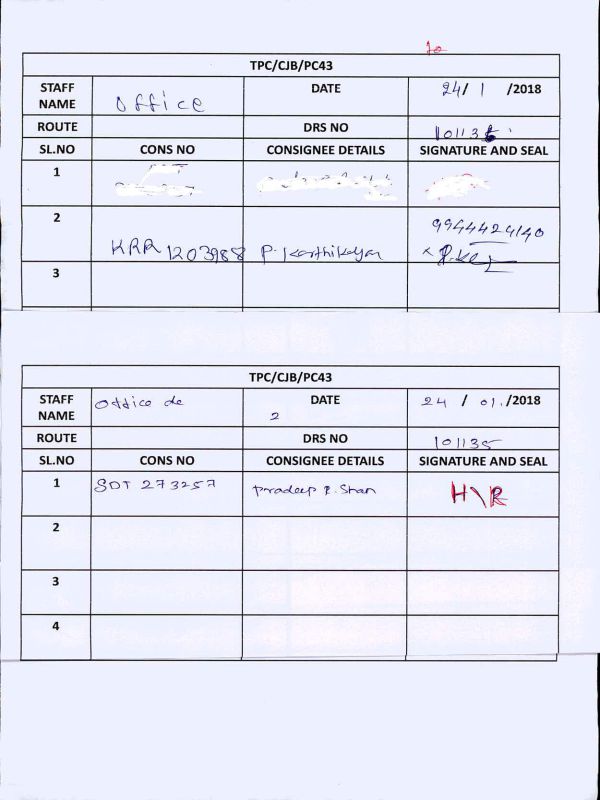 TPC/CJB/PC43
STAFF NAME office DATE 24/ 1 /2018
ROUTE DRS NO
SL.NO CONS NO CONSIGNEE DETAILS SIGNATURE AND SEAL
1
2 KRR 1203988 P. Karthikeyan 9944424140
3
TPC/CJB/PC43
STAFF NAME office de DATE 24 / 01. /2018
2
ROUTE DRS NO 101135
SL.NO CONS NO CONSIGNEE DETAILS SIGNATURE AND SEAL
1 SOT 273257 Pradeep R. Shan H\R
2
3
4